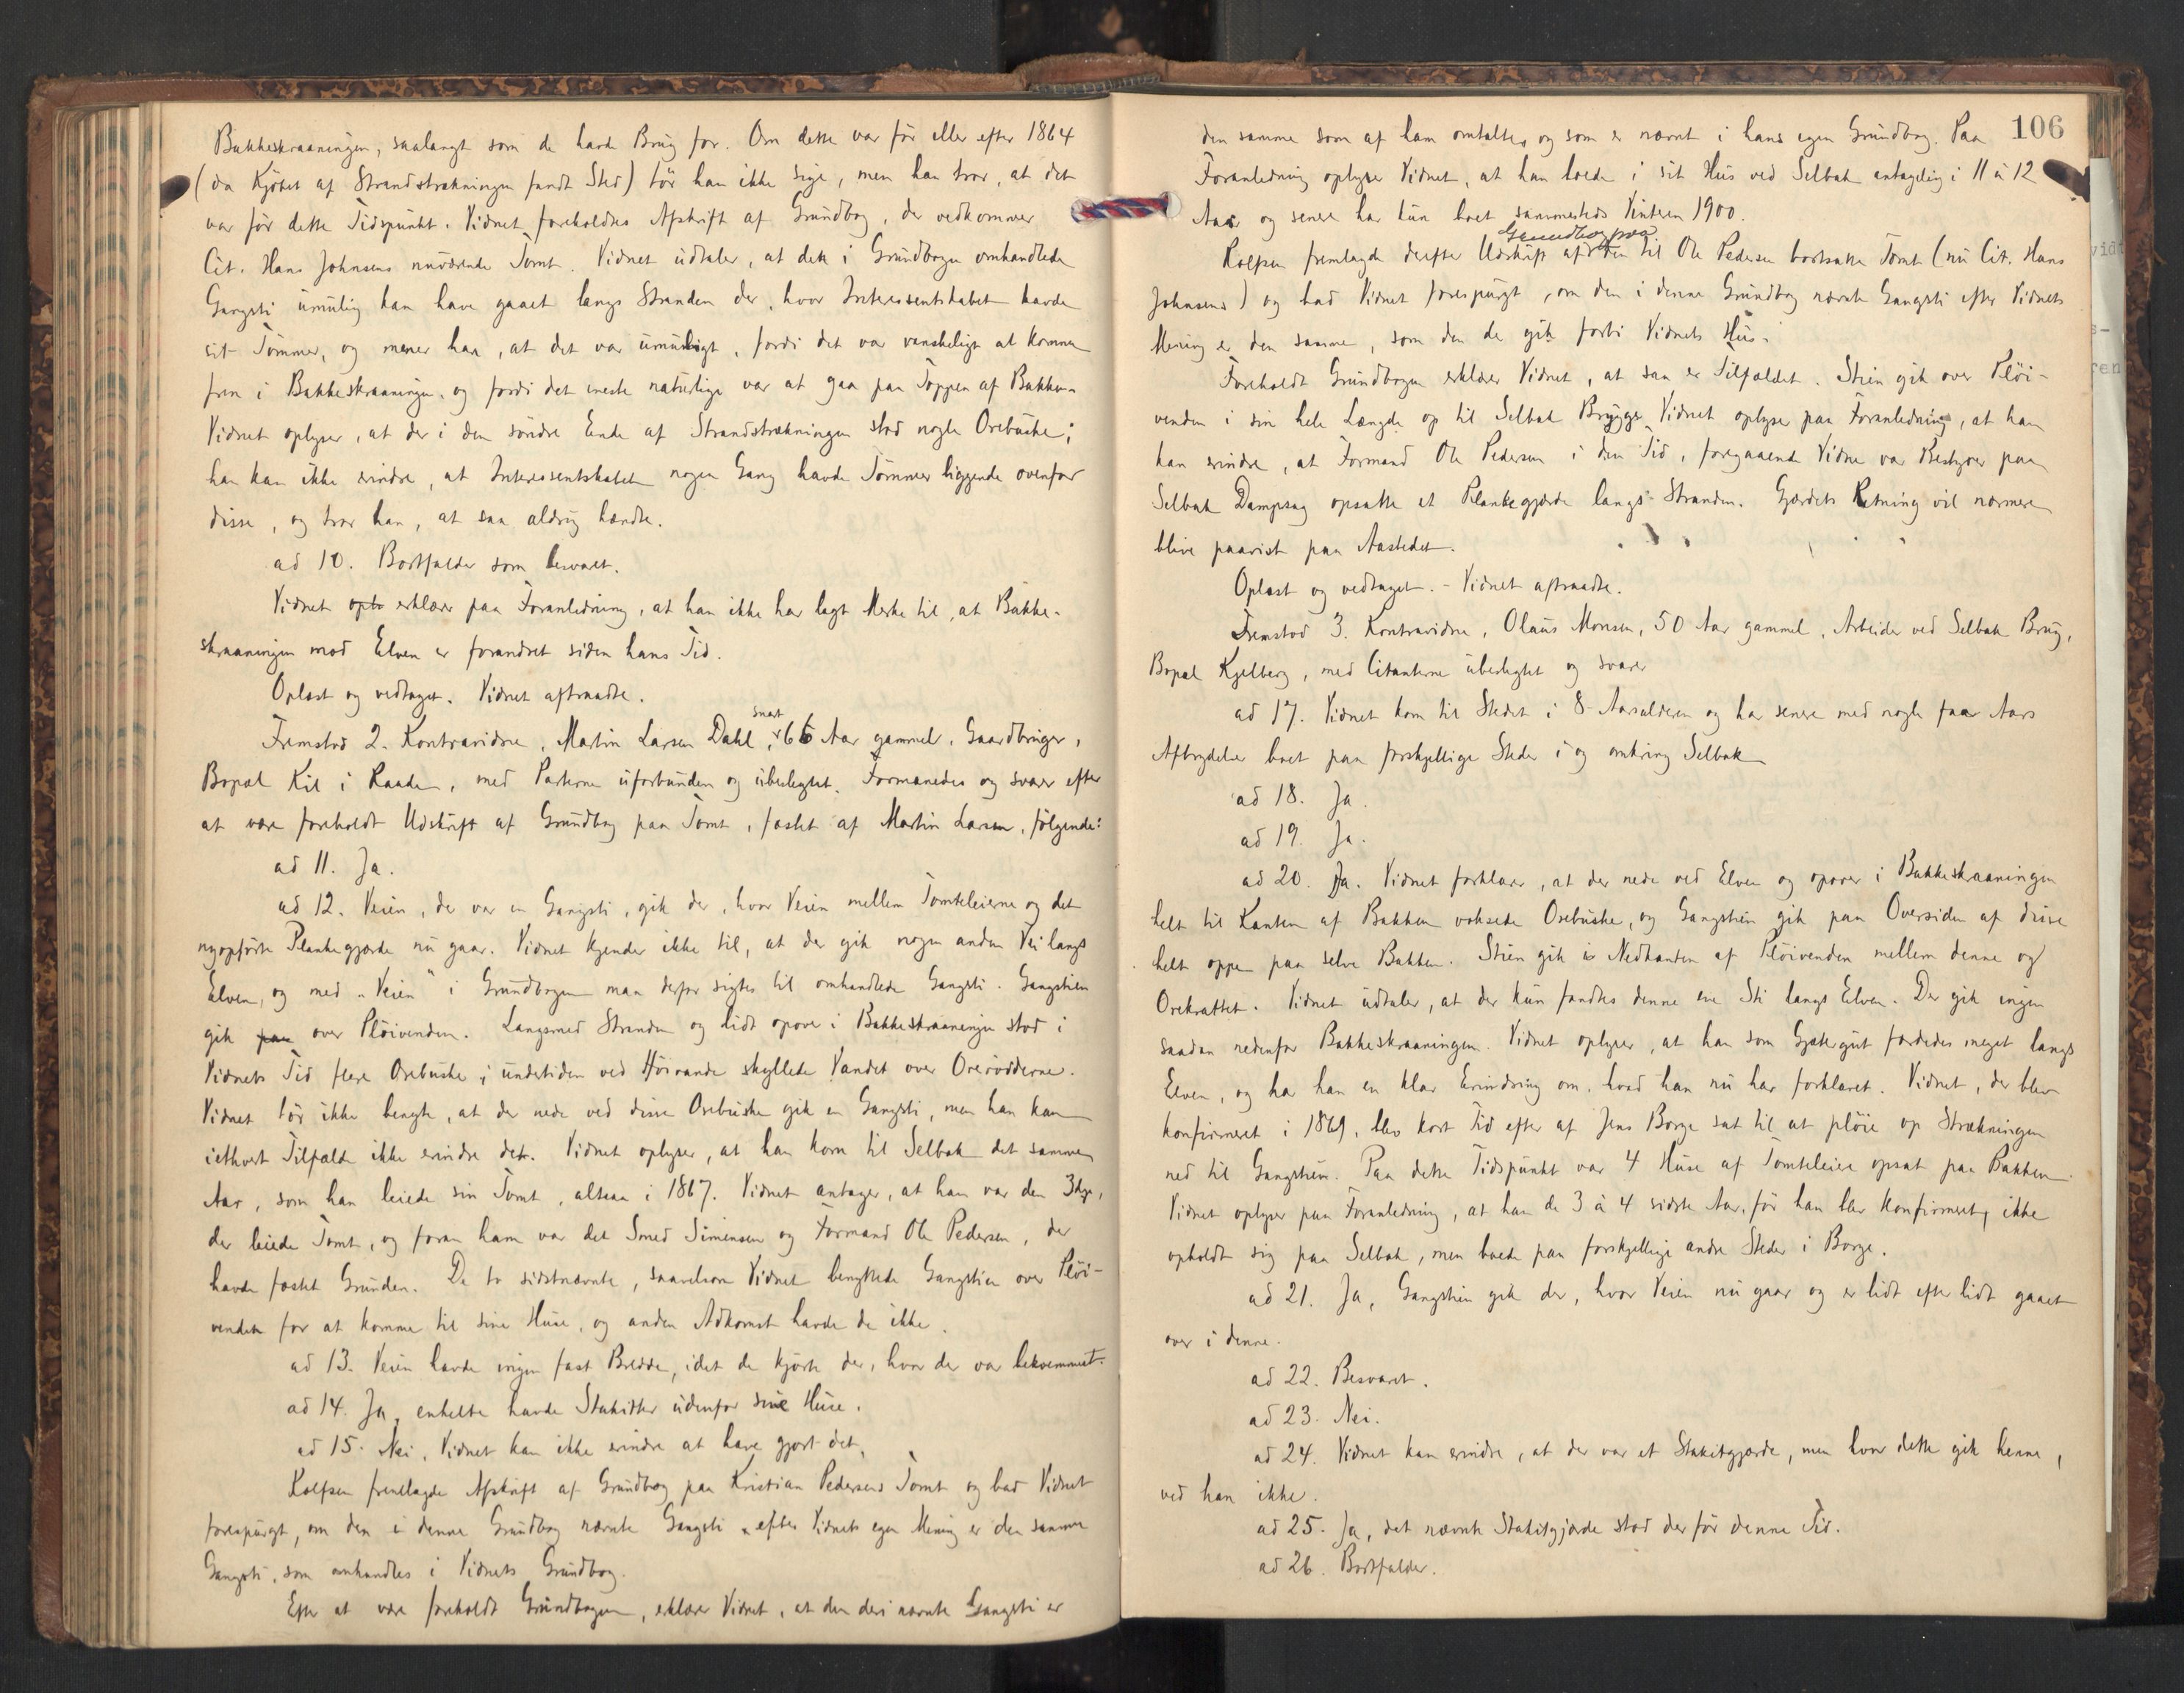 Bakkeskraaningen, saalangt som de havde Brug for. Om dette var før eller efter 1864
(da Kjøbet af Strandstrækningen fandt Sted) tør han ikke sige, men han tror, at det
var før dette Tidspunkt. Vidnet foreholdtes Afskrift af Grundbog, der vedkommer
Cit. Hans Johnsens nuværende Tomt. Vidnet udtaler, at den i Grundbogen omhandlede
Gangsti umulig kan have gaaet langs Stranden der, hvor Interessentskabet havde
sit Tømmer, og mener han, at det var umuligt, fordi det var vanskeligt at komme
frem i Bakkeskraaningen, og fordi det eneste naturlige var at gaa paa Toppen af Bakken.
Vidnet oplyser, at der i den søndre Ende af Strandstrækningen stod nogle Orebuske;
han kan ikke erindre, at Interessentskabet nogen Gang havde Tømmer liggende ovenfor
disse, og tror han, at saa aldrig hændte.
ad 10. Bortfalder som besvaret.
Vidnet oplr erklærer paa Foranledning, at han ikke har lagt Merke til, at Bakke-
skraaningen mod Elven er forandret siden hans Tid.
Oplæst og vedtaget. Vidnet aftraadte.
Fremstod 2. Kontravidne, Martin Larsen Dahl, snart 66 Aar gammel, Gaardbruger,
Bopæl Kil i Raade, med Parterne uforbunden og ubeslegtet. Formanedes og svarer efter
at være foreholdt Udskrift af Grundbog paa Tomt, fæstet af Martin Larsen, følgende:
ad 11. Ja.
ad 12. Veien, der var en Gangsti, gik der, hvor Veien mellem Tomteleierne og det
nyopførte Plankegjærde nu gaar. Vidnet kjender ikke til, at der gik nogen anden Vei langs
Elven, og med "Veien" i Grundbogen maa derfor sigtes til omhandlede Gangsti. Gangstien
gik paa over Pløivenden. Langsmed Stranden og lidt opover i Bakkeskraaningen stod i
Vidnets Tid flere Orebuske; undertiden ved Høivande skyllede Vandet over Orerødderne.
Vidnet tør ikke benegte, at der nede ved disse Orebuske gik en Gangsti, men han kan
iethvert Tilfælde ikke erindre det. Vidnet oplyser, at han kom til Selbak det samme
Aar, som han leiede sin Tomt, altsaa i 1867. Vidnet antager, at han var den 3dje,
der leiede Tomt, og foran ham var det Smed Simensen og Formand Ole Pedersen, der
havde fæstet Grunden. De to sidstnævnte, saavelsom Vidnet benyttede Gangstien over Pløi-
venden for at komme til sine Huse, og anden Adkomst havde de ikke.
ad 13. Veien havde ingen fast Bredde, idet de kjørte der, hvor der var bekvemmest.
ad 14. Ja, enkelte havde Stakitter udenfor sine Huse.
ad 15. Nei, Vidnet kan ikke erindre at have gjort det.
Rolfsen fremlagde Afskrift af Grundbog paa Kristian Pedersens Tomt og bad Vidnet
forespurgt, om den i denne Grundbog nævnte Gangsti efter Vidnets egen Mening er den samme
Gangsti, som omhandles i Vidnets Grundbog.
Efter at være foreholdt Grundbogen, erklærer Vidnet, at den deri nævnte Gangsti er
106
den samme som af ham omtalte, og som er nævnt i hans egen Grundbog. Paa
Foranledning oplyser Vidnet, at han boede i sit Hus ved Selbak antagelig i 11 à 12
Aar og senere har kun boet sammesteds Vinteren 1900.
Grundbog paa
Rolfsen fremlagde derefter Udskrift af den til Ole Pedersen bortsatte Tomt (nu Cit. Hans
Johnsens) og bad Vidnet forespurgt, om den i denne Grundbog nævnte Gangsti efter Vidnets
Mening er den samme, som den der gik forbi Vidnets Hus.
Foreholdt Grundbogen erklærer Vidnet, at saa er Tilfældet. Stien gik over Pløi-
venden i sin hele Længde op til Selbak Brygge. Vidnet oplyser paa Foranledning, at han
kan erindre, at Formand Ole Pedersen i den Tid, foregaaende Vidne var Bestyrer paa
Selbak Dampsag opsatte et Plankegjærde langs Stranden. Gjærdets Retning vil nærmere
blive paavist paa Aastedet.
Oplæst og vedtaget. - Vidnet aftraadte.
Fremstod 3. Kontravidne, Olaus Monsen, 50 Aar gammel, Arbeider ved Selbak Brug,
Bopæl Kjelberg, med Citanterne ubeslegtet og svarer
ad 17. Vidnet kom til Stedet i 8-Aarsalderen og har senere med nogle faa Aars
Afbrydelse boet paa forskjellige Steder i og omkring Selbak
ad 18. Ja.
ad 19. Ja.
ad 20. Ja. Vidnet forklarer, at der nede ved Elven og opover i Bakkeskraaningen
helt til Kanten af Bakken voksede Orebuske, og Gangstien gik paa Oversiden af disse
helt oppe paa selve Bakken. Stien gik i Nedkanten af Pløivenden mellem denne og
Orekrattet. Vidnet udtaler, at der kun fandtes denne ene Sti langs Elven. Der gik ingen
saadan nedenfor Bakkeskraaningen. Vidnet oplyser, at han som Gjætergut færdedes meget langs
Elven, og har han en klar Erindring om, hvad han nu har forklaret. Vidnet, der blev
konfirmeret i 1869, blev kort Tid efter af Jens Borge sat til at pløie op Strækningen
ned til Gangstien. Paa dette Tidspunkt var 4 Huse af Tomteleiere opsat paa Bakken.
Vidnet oplyser paa Foranledning, at han de 3 à 4 sidste Aar, før han blev konfirmeret, ikke
opholdt sig paa Selbak, men boede paa forskjellige andre Steder i Borge.
ad 21. Ja, Gangstien gik der, hvor Veien nu gaar og er lidt efter lidt gaaet
over i denne.
ad 22. Besvaret.
ad 23. Nei.
ad 24. Vidnet kan erindre, at der var et Stakitgjærde, men hvor dette gik henne,
ved han ikke.
ad 25. Ja, det nævnte Stakitgjærde stod der før denne Tid.
ad 26. Bortfalder.